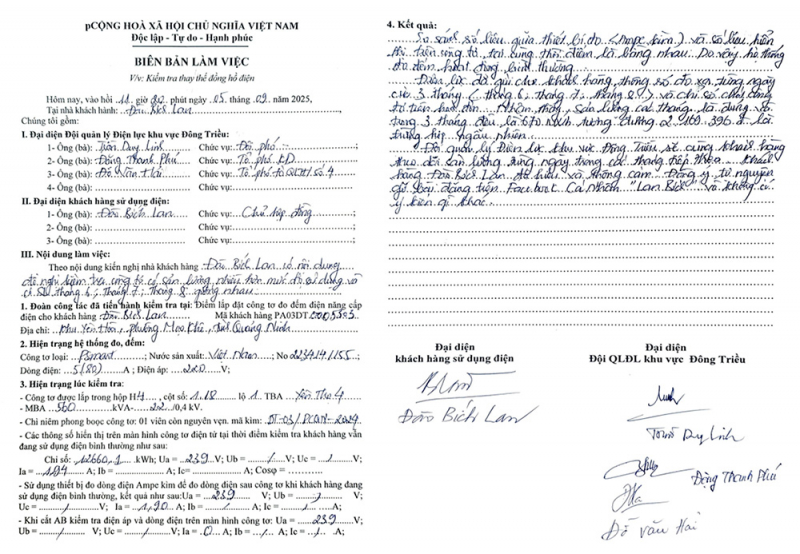 pCỘNG HOÀ XÃ HỘI CHỦ NGHĨA VIỆT NAM
Độc lập - Tự do - Hạnh phúc
BIÊN BẢN LÀM VIỆC
V/v: Kiểm tra thay thế đồng hồ điện
Hôm nay, vào hồi 11 giờ 00 phút ngày 05 tháng 09 năm 2025,
Tại nhà khách hàng: Đào Bích Lan
Chúng tôi gồm:
I. Đại diện Đội quản lý Điện lực khu vực Đông Triều:
1- Ông (bà): Trần Duy Linh Chức vụ: Đội phó
2- Ông (bà): Đặng Thanh Phú Chức vụ: Tổ phó KD
3- Ông (bà): Đỗ Văn Hải Chức vụ: Tổ phó tổ QLKH số 4
4- Ông (bà): Chức vụ:
II. Đại diện khách hàng sử dụng điện:
1- Ông (bà): Đào Bích Lan Chức vụ: Chủ hợp đồng
2- Ông (bà): Chức vụ:
3- Ông (bà): Chức vụ:
III. Nội dung làm việc:
Theo nội dung kiến nghị nhà khách hàng Đào Bích Lan có nội dung
đề nghị kiểm tra công tơ có sản lượng nhiều hơn mức độ sử dụng và
có SL tháng 6; Tháng 7; Tháng 8 giống nhau
1. Đoàn công tác đã tiến hành kiểm tra tại: Điểm lắp đặt công tơ đo đếm điện năng cấp
điện cho khách hàng: Đào Bích Lan Mã khách hàng PA03DT
Địa chỉ: Khu Yên Hòa, phường Mạo Khê, tỉnh Quảng Ninh
2. Hiện trạng hệ thống đo, đếm:
Công tơ loại: Psmart; Nước sản xuất: Việt Nam; No 2234141155;
Dòng điện: 5(80) A; Điện áp: 220 V;
3. Hiện trạng lúc kiểm tra:
- Công tơ được lắp trong hộp H4, cột số: 1.18 lộ 1 TBA Yên Thọ 4
- MBA 560 kVA- 22 /0,4 kV.
- Chì niêm phong booc công tơ: 01 viên còn nguyên vẹn. mã kìm: ĐT-03/PCQN-2024
- Các thông số hiển thị trên màn hình công tơ điện tử tại thời điểm kiểm tra khách hàng vẫn
đang sử dụng điện bình thường như sau:
Chỉ số: 12660,1 kWh; Ua = 239 V; Ub = / V; Uc = / V;
Ia = 1,94 A; Ib = / A; Ic= / A; Cosφ =
- Sử dụng thiết bị đo dòng điện Ampe kìm để đo dòng điện sau công tơ khi khách hàng đang
sử dụng điện bình thường, kết quả như sau:Ua = 239 V; Ub = / V;
Uc = / V; Ia = 1,90 A; Ib = / A; Ic = / A;
- Khi cắt AB kiểm tra điện áp và dòng điện trên màn hình công tơ: Ua = 239 V;
Ub = / V; Uc = / V; Ia = 0 A; Ib = / A; Ic = / A;
4. Kết quả:
So sánh số liệu giữa thiết bị đo (Ampe kìm) và số liệu hiển
thị trên công tơ tại cùng thời điểm là bằng nhau. Do vậy hệ thống
đo đếm hoạt động bình thường.
Điện lực đã gửi cho khách hàng thông số đo xa từng ngày
của 3 tháng (tháng 6; tháng 7; tháng 8) và chỉ số chốt công
tơ trên hóa đơn. Nhận thấy, sản lượng các tháng là đúng và
trong 3 tháng đều là 670 kWh tương đương 2 160 396 đ là
trường hợp ngẫu nhiên.
Đội quản lý Điện lực khu vực Đông Triều sẽ cùng khách hàng
theo dõi sản lượng từng ngày trong các tháng tiếp theo. Khách
hàng Đào Bích Lan đã hiểu và thông cảm. Đồng ý tự nguyện
gỡ bài đăng trên Facebook Cá nhân "Lan Bích" và không có
ý kiến gì khác.
Đại diện
khách hàng sử dụng điện
Đào Bích Lan
Đại diện
Đội QLĐL khu vực Đông Triều
Trần Duy Linh
Đặng Thanh Phú
Đỗ Văn Hải